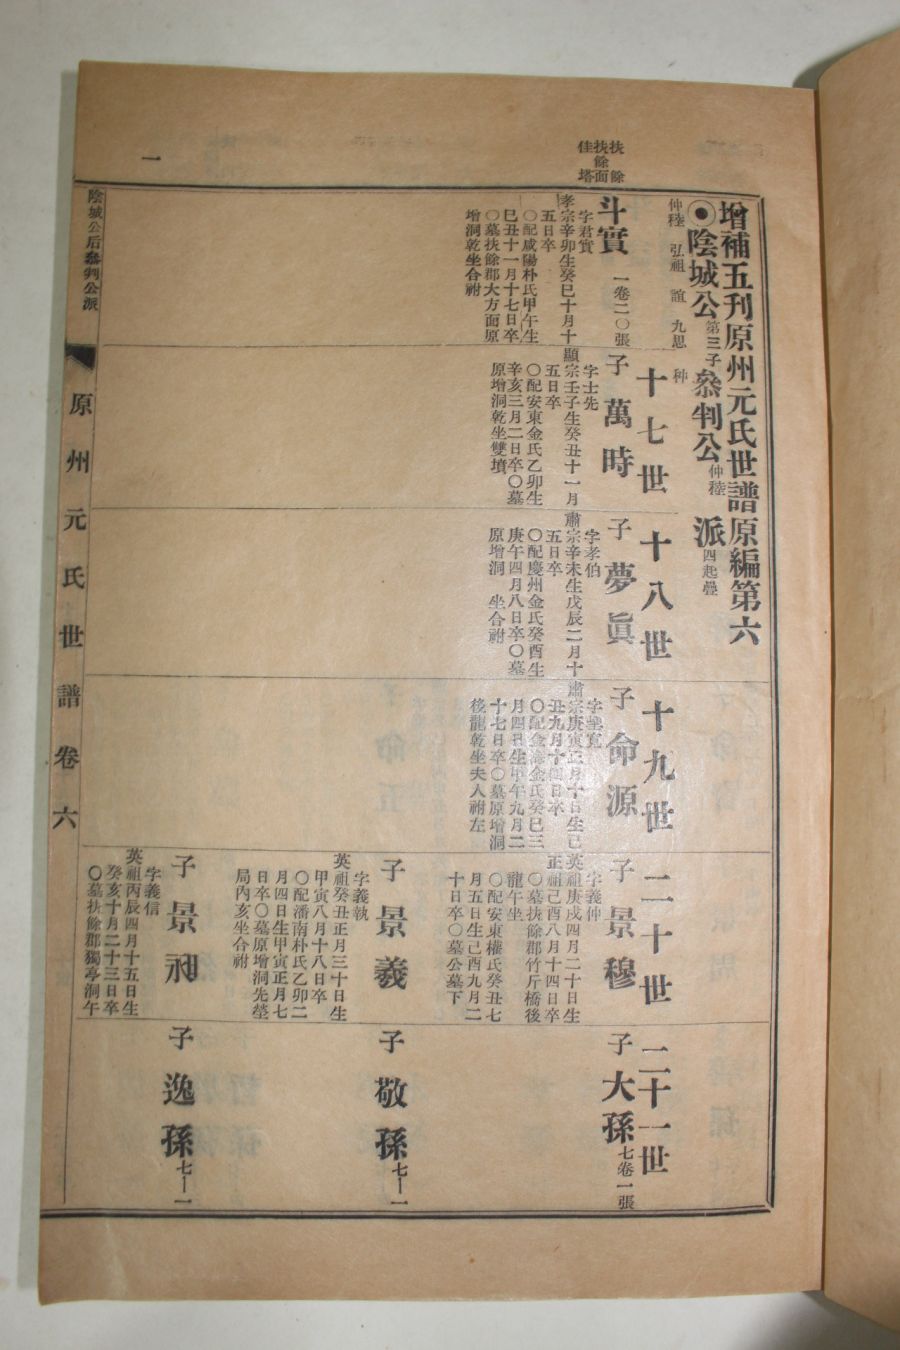 增補五刊原州元氏世譜原編第六
◉陰城公第三子叅判公仲稑派四起疊
仲稑 弘祖 誼 九思 种
扶餘
扶餘面
佳塔
斗實 一卷二〇張
字君實
孝宗辛卯生癸巳十月十
五日卒
〇配咸陽朴氏甲午生
巳丑十一月十七日卒
〇墓扶餘郡大方面原
增洞乾坐合祔
十七世
子萬時
字士先
顯宗壬子生癸丑十一月
五日卒
〇配安東金氏乙卯生
辛亥三月二日卒〇墓
原增洞乾坐雙墳
十八世
子夢眞
字孝伯
肅宗辛未生戊辰二月十
五日卒
〇配慶州金氏癸酉生
庚午四月八日卒〇墓
原增洞 坐合祔
十九世
子命源
字 寬
肅宗庚寅正月十日生己
丑九月十四日卒
〇配金海金氏癸巳三
月四日生甲午九月二
十七日卒〇墓原增洞
後龍乾坐夫人祔左
二十世
子景穆
字義仲
英祖庚戌四月二十日生
正祖己酉八月十四日卒
〇墓扶餘郡竹斤橋後
龍午坐
〇配安東權氏癸丑七
月五日生己酉九月二
十日卒〇墓公墓下
子景羲
字義執
英祖癸丑正月三十日生
甲寅八月十八日卒
〇配潘南朴氏乙卯二
月四日生甲寅正月七
日卒〇墓原增洞先塋
局內亥坐合祔
子景昶
字義信
英祖丙辰四月十五日生
癸亥十月二十三日卒
〇墓扶餘郡獨亭洞午
二十一世
子大孫七卷一張
子敬孫七—一
子逸孫七—一
一
陰城公后叅判公派
原州元氏世譜卷六